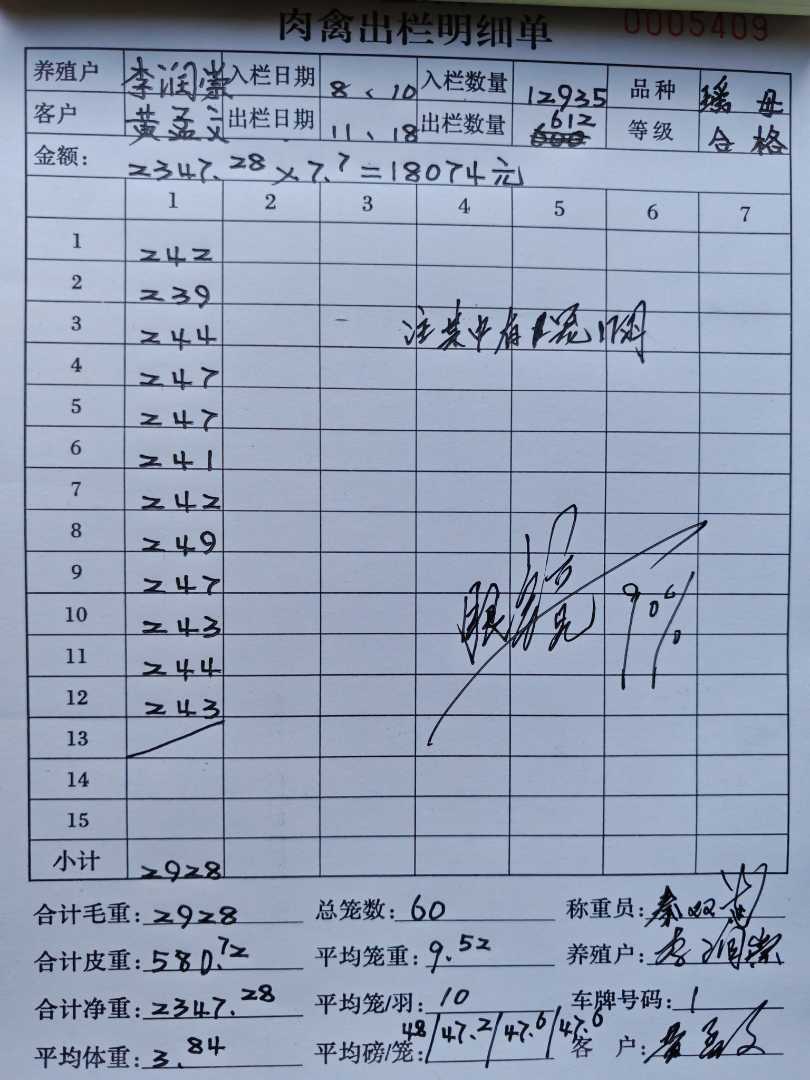 肉禽出栏明细单 0005409
养殖户 李润崇 入栏日期 8、10 入栏数量 12935 品种 瑶母
客户 黄孟文 出栏日期 11、18 出栏数量 612 等级 合格
金额: 2347.28×7.7=18074元
1 2 3 4 5 6 7
1 242
2 239
3 244
4 247
5 247
6 241
7 242
8 249
9 247
10 243
11 244
12 243
13
14
15
小计 2928
注其中有
90%
合计毛重: 2928 总笼数: 60 称重员: 秦双
合计皮重: 580.72 平均笼重: 9.52 养殖户: 李润崇
合计净重: 2347.28 平均笼/羽: 10 车牌号码: 1
平均体重: 3.84 平均磅/笼: 48/47.2/47.6/47.6 客户: 黄孟文